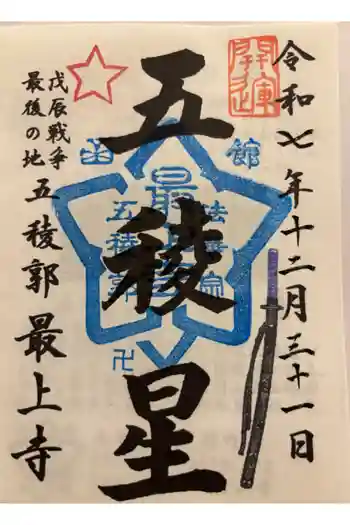 令和七年十二月三十一日
開運
五稜星
函館
最上寺
法華宗
五稜郭
卍
戊辰戦争
最後の地
五稜郭 最上寺